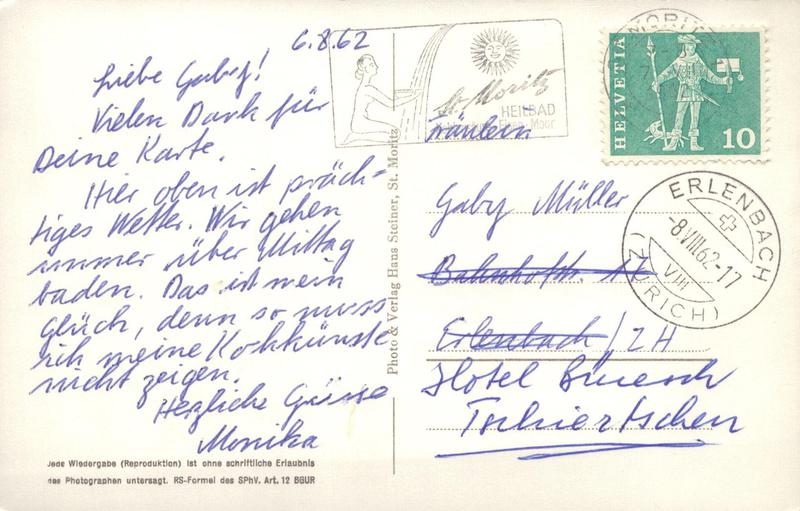 6.8.62
Liebe Gaby!
Vielen Dank für
Deine Karte.
Hier oben ist präch-
tiges Wetter. Wir gehen
immer über Mittag
baden. Das ist mein
Glück, denn so muss
ich meine Kochkünste
nicht zeigen.
Herzliche Grüsse
Monika
Jede Wiedergabe (Reproduktion) ist ohne schriftliche Erlaubnis
des Photographen untersagt. RS-Formel des SPhV. Art. 12 BGUR
Photo & Verlag Hans Steiner, St. Moritz
St. Moritz
HEILBAD
Moor
MORITZ
HELVETIA
10
Fräulein
Gaby Müller
Bahnhofstr. 17
Erlenbach/ZH
Hotel Büesch
Tschiertschen
ERLENBACH
-8.VIII.62-17
VIII
(ZÜRICH)